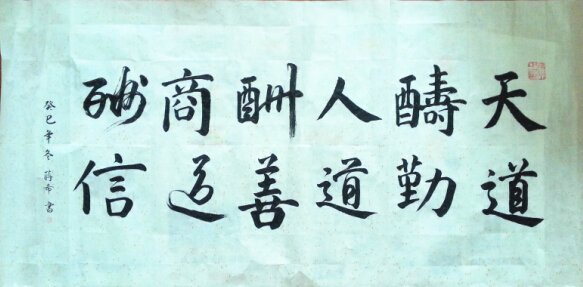 天道
醻勤
人道
酬善
商道
酬信
癸巳年冬蒋希書